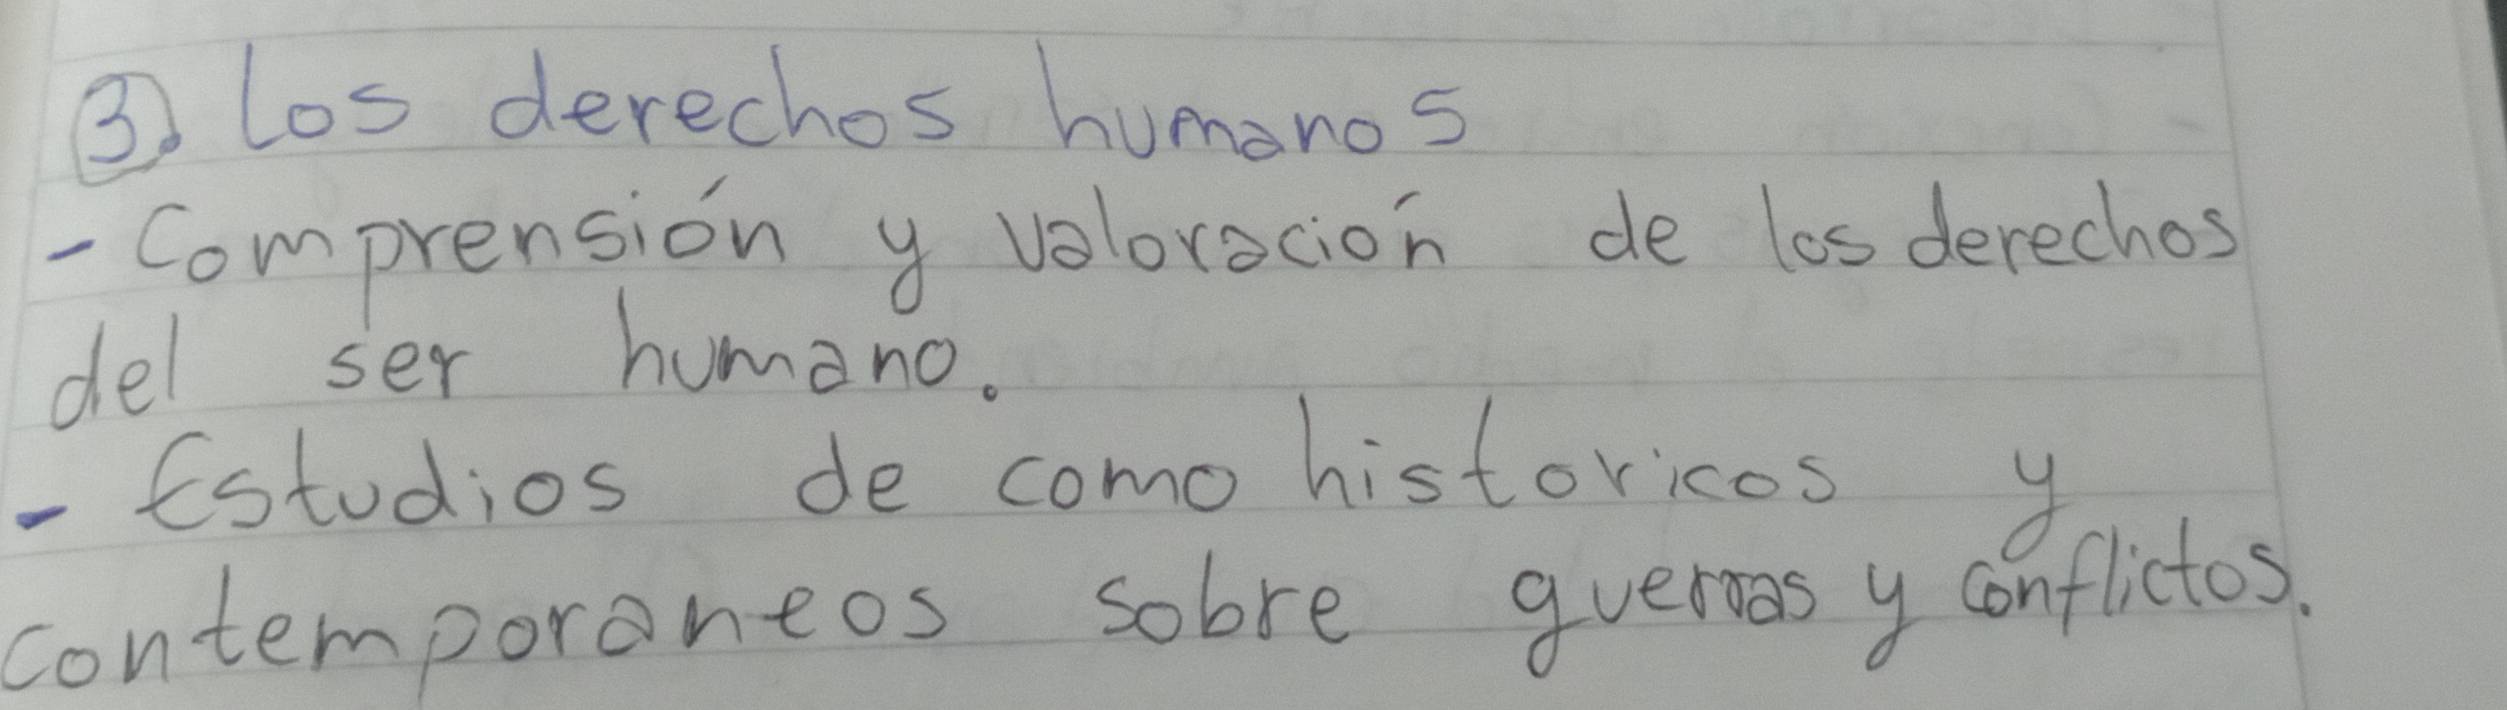 3. Los derechos humanos
- Comprensión y valoración de los derechos
del ser humano.
- Estudios de como historicos y
contemporaneos sobre guerras y conflictos.